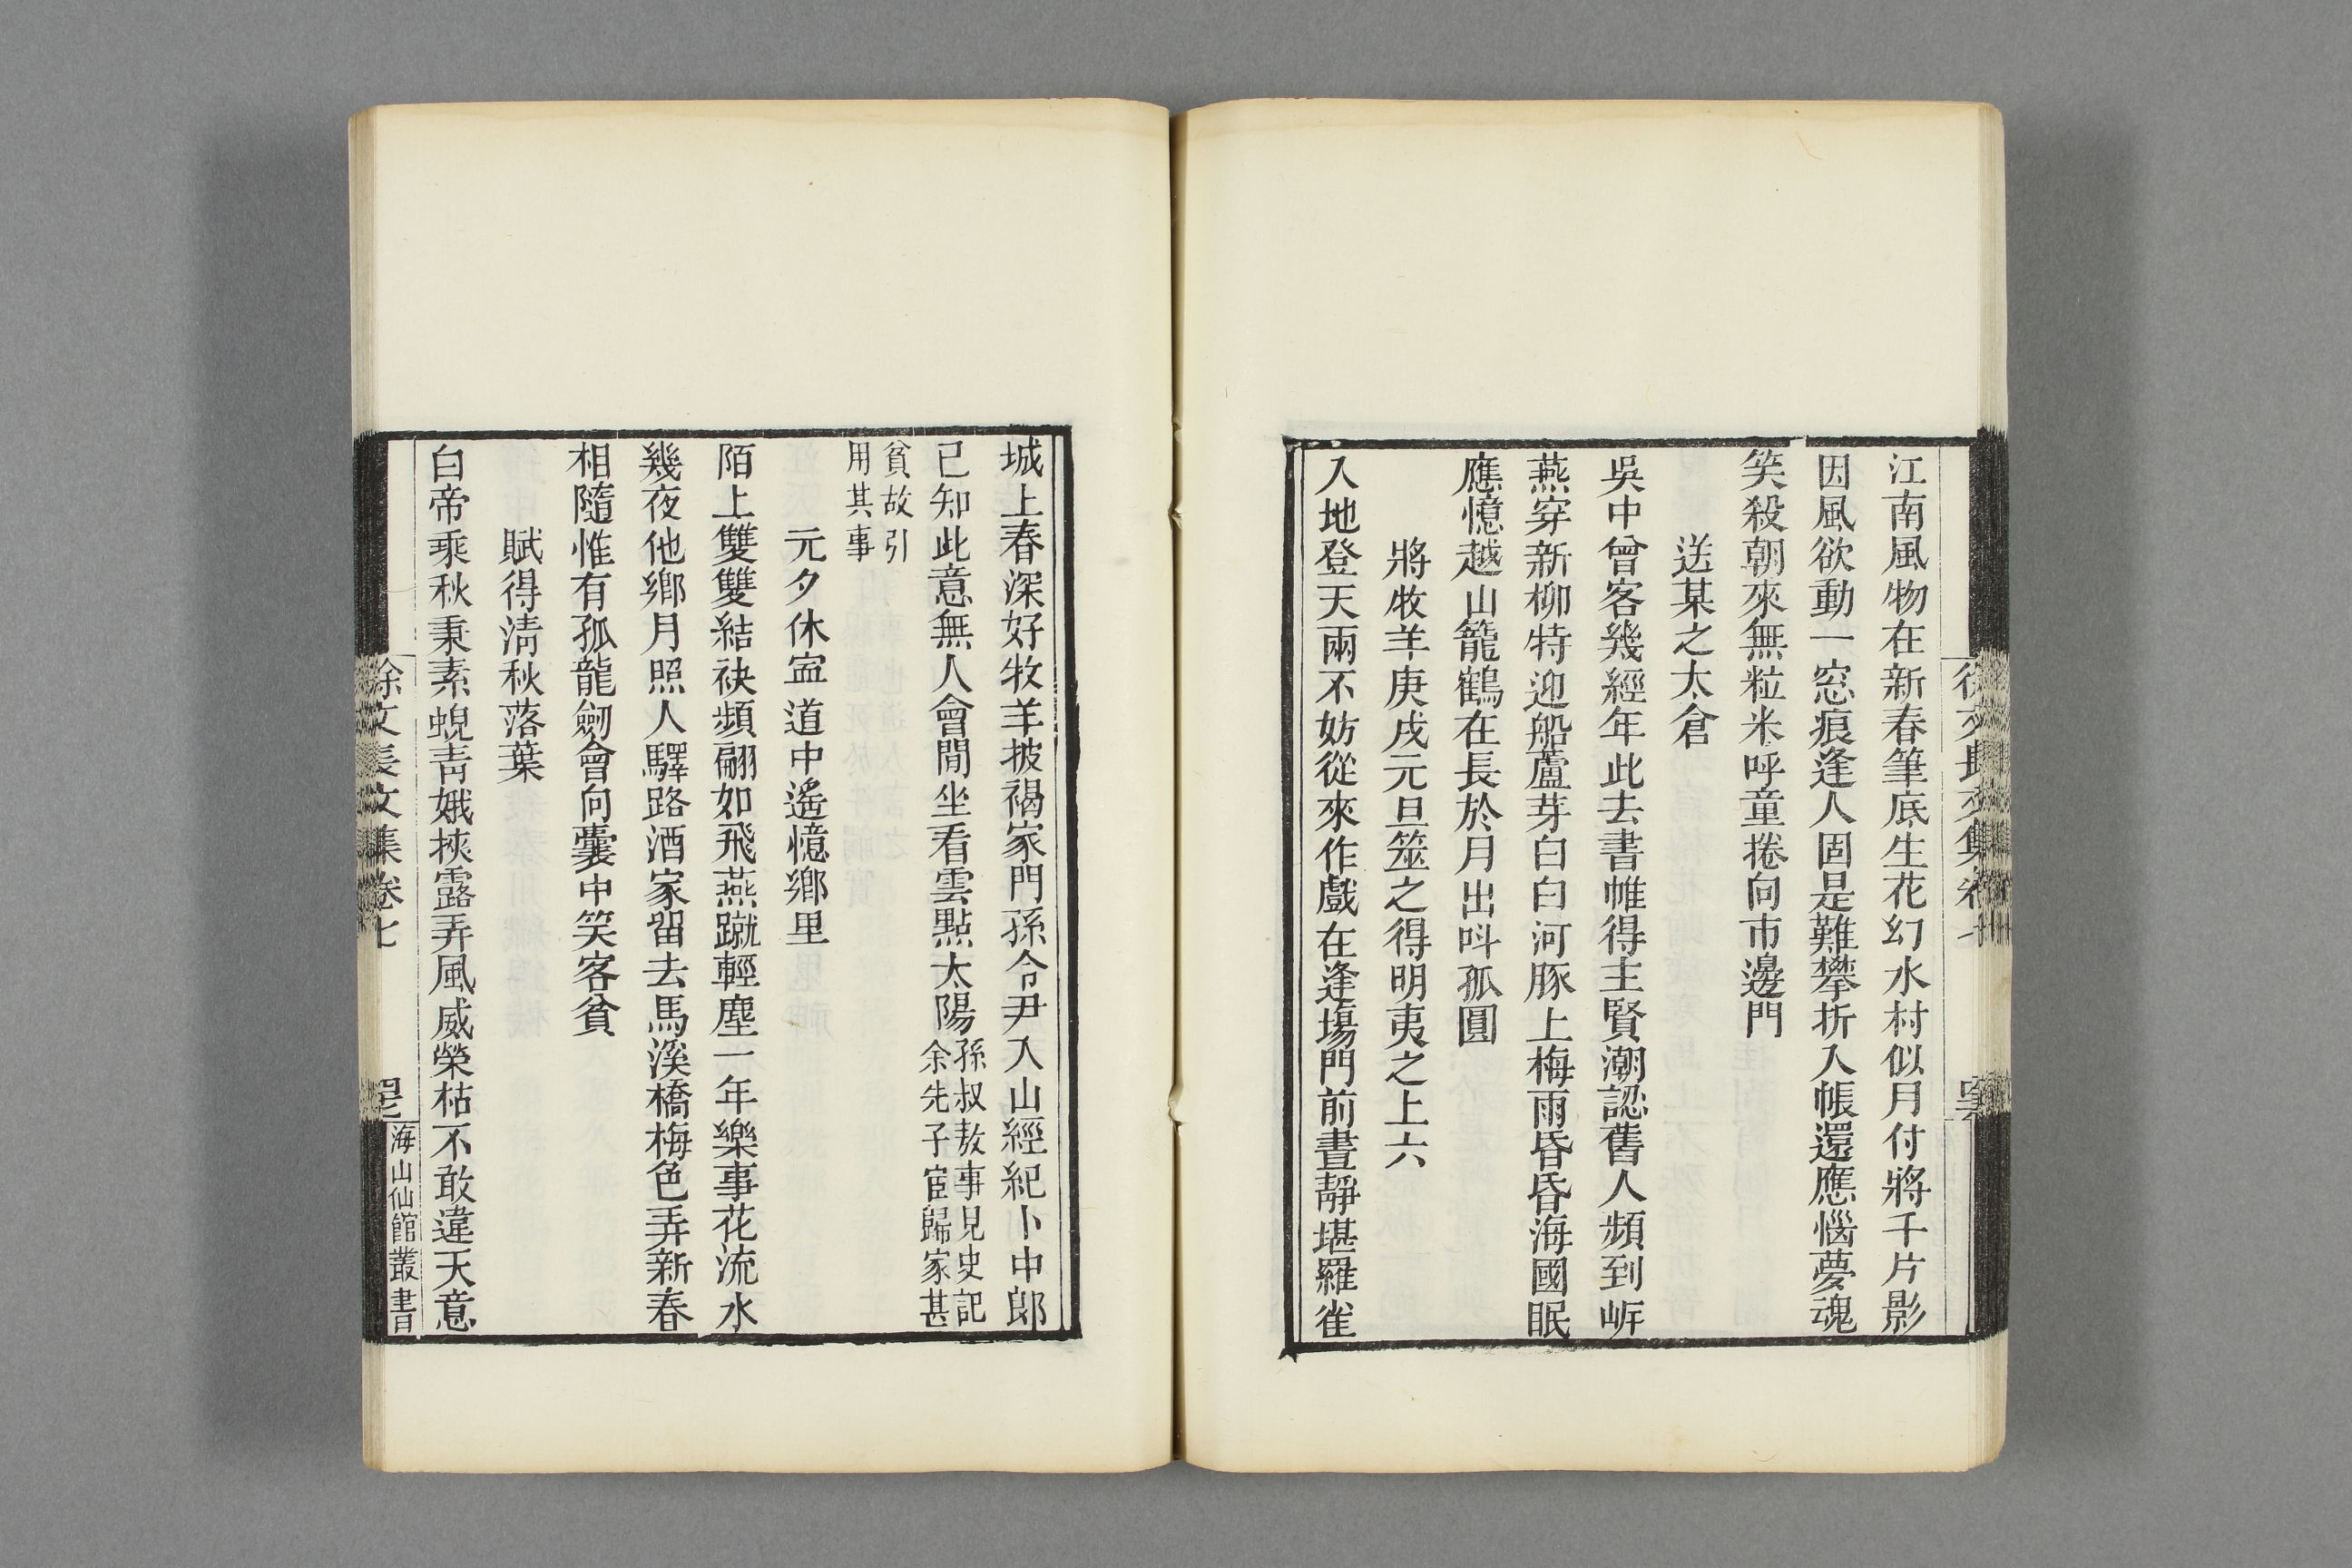 江南風物在新春筆底生花幻水村似月付將千片影
因風欲動一窓痕逢人固是難攀折入帳還應惱夢魂
笑殺朝來無粒米呼童捲向市邊門
送某之太倉
吳中曾客幾經年此去書帷得主賢潮認舊人頻到岍
燕穿新柳特迎船蘆芽白白河豚上梅雨昏昏海國眠
應憶越山籠鶴在長於月出呌孤圓
將牧羊庚戌元旦筮之得明夷之上六
入地登天兩不妨從來作戲在逢塲門前晝靜堪羅雀
城上春深好牧羊披褐家門孫令尹入山經紀卜中郎
已知此意無人會閒坐看雲點太陽
孫叔敖事見史記
余先子宦歸家甚
貧故引
用其事
元夕休寍道中遙憶鄉里
陌上雙雙結袂頻翩如飛燕蹴輕塵一年樂事花流水
幾夜他鄉月照人驛路酒家畱去馬溪橋梅色弄新春
相隨惟有孤龍劒會向囊中笑客貧
賦得淸秋落葉
白帝乘秋秉素蜺靑娥挾露弄風威榮枯不敢違天意
徐文長文集卷七
海山仙館叢書